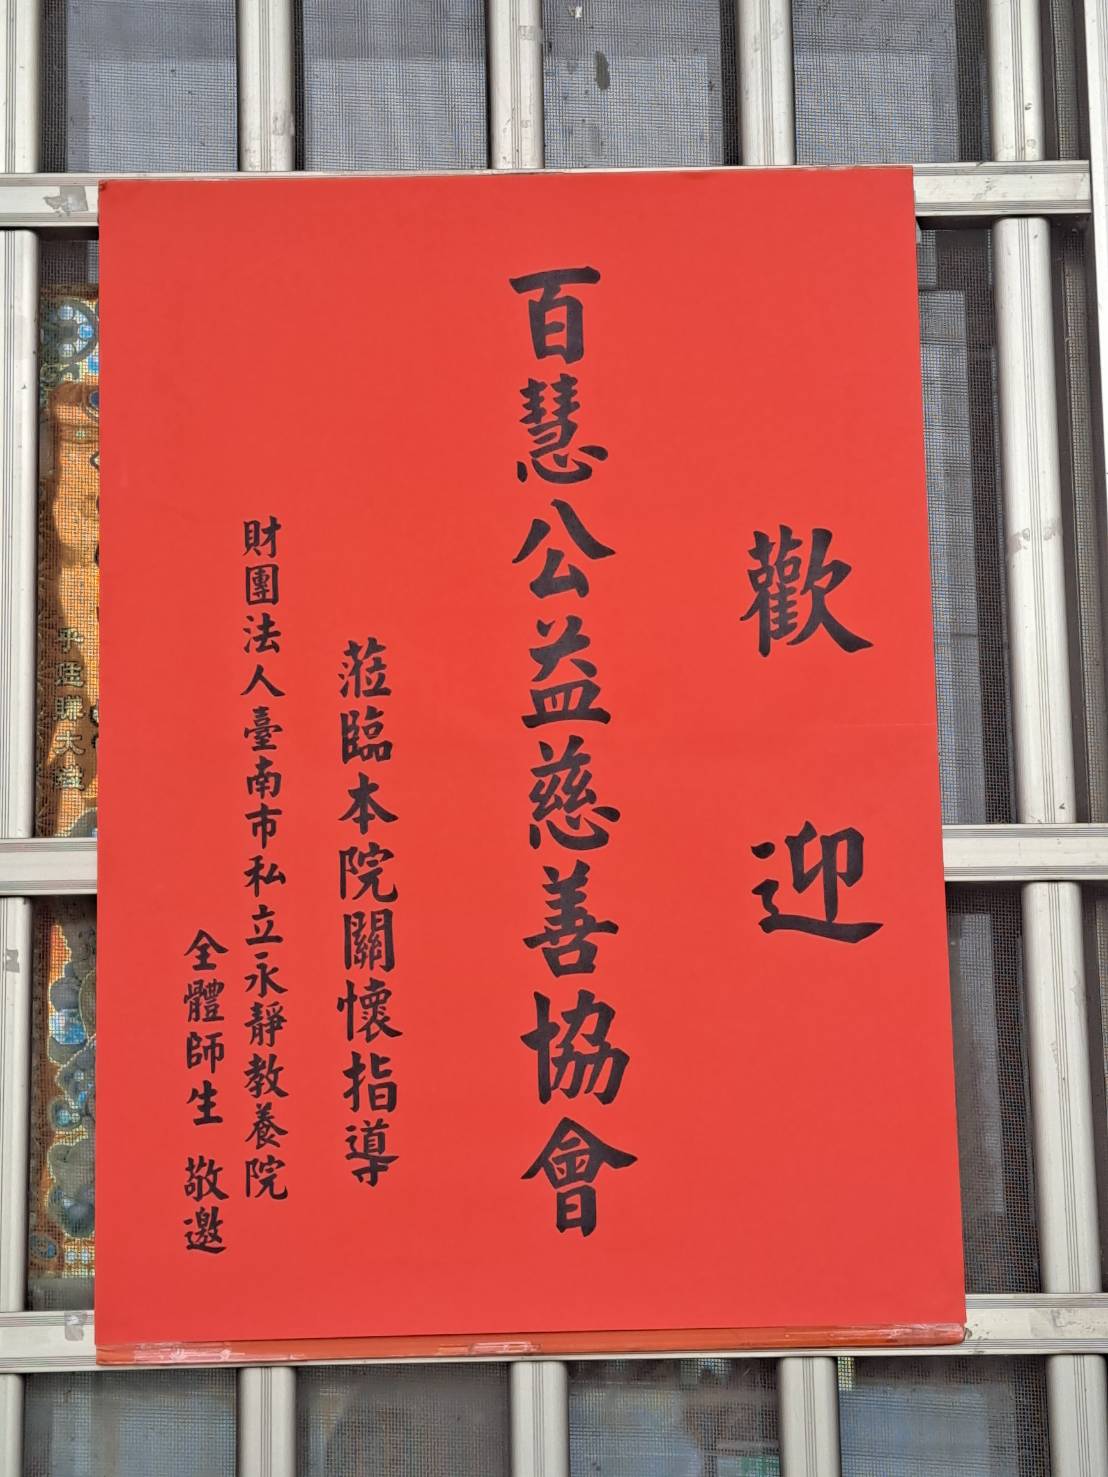 歡迎
百慧公益慈善協會
蒞臨本院關懷指導
財團法人臺南市私立永靜教養院
全體師生 敬邀